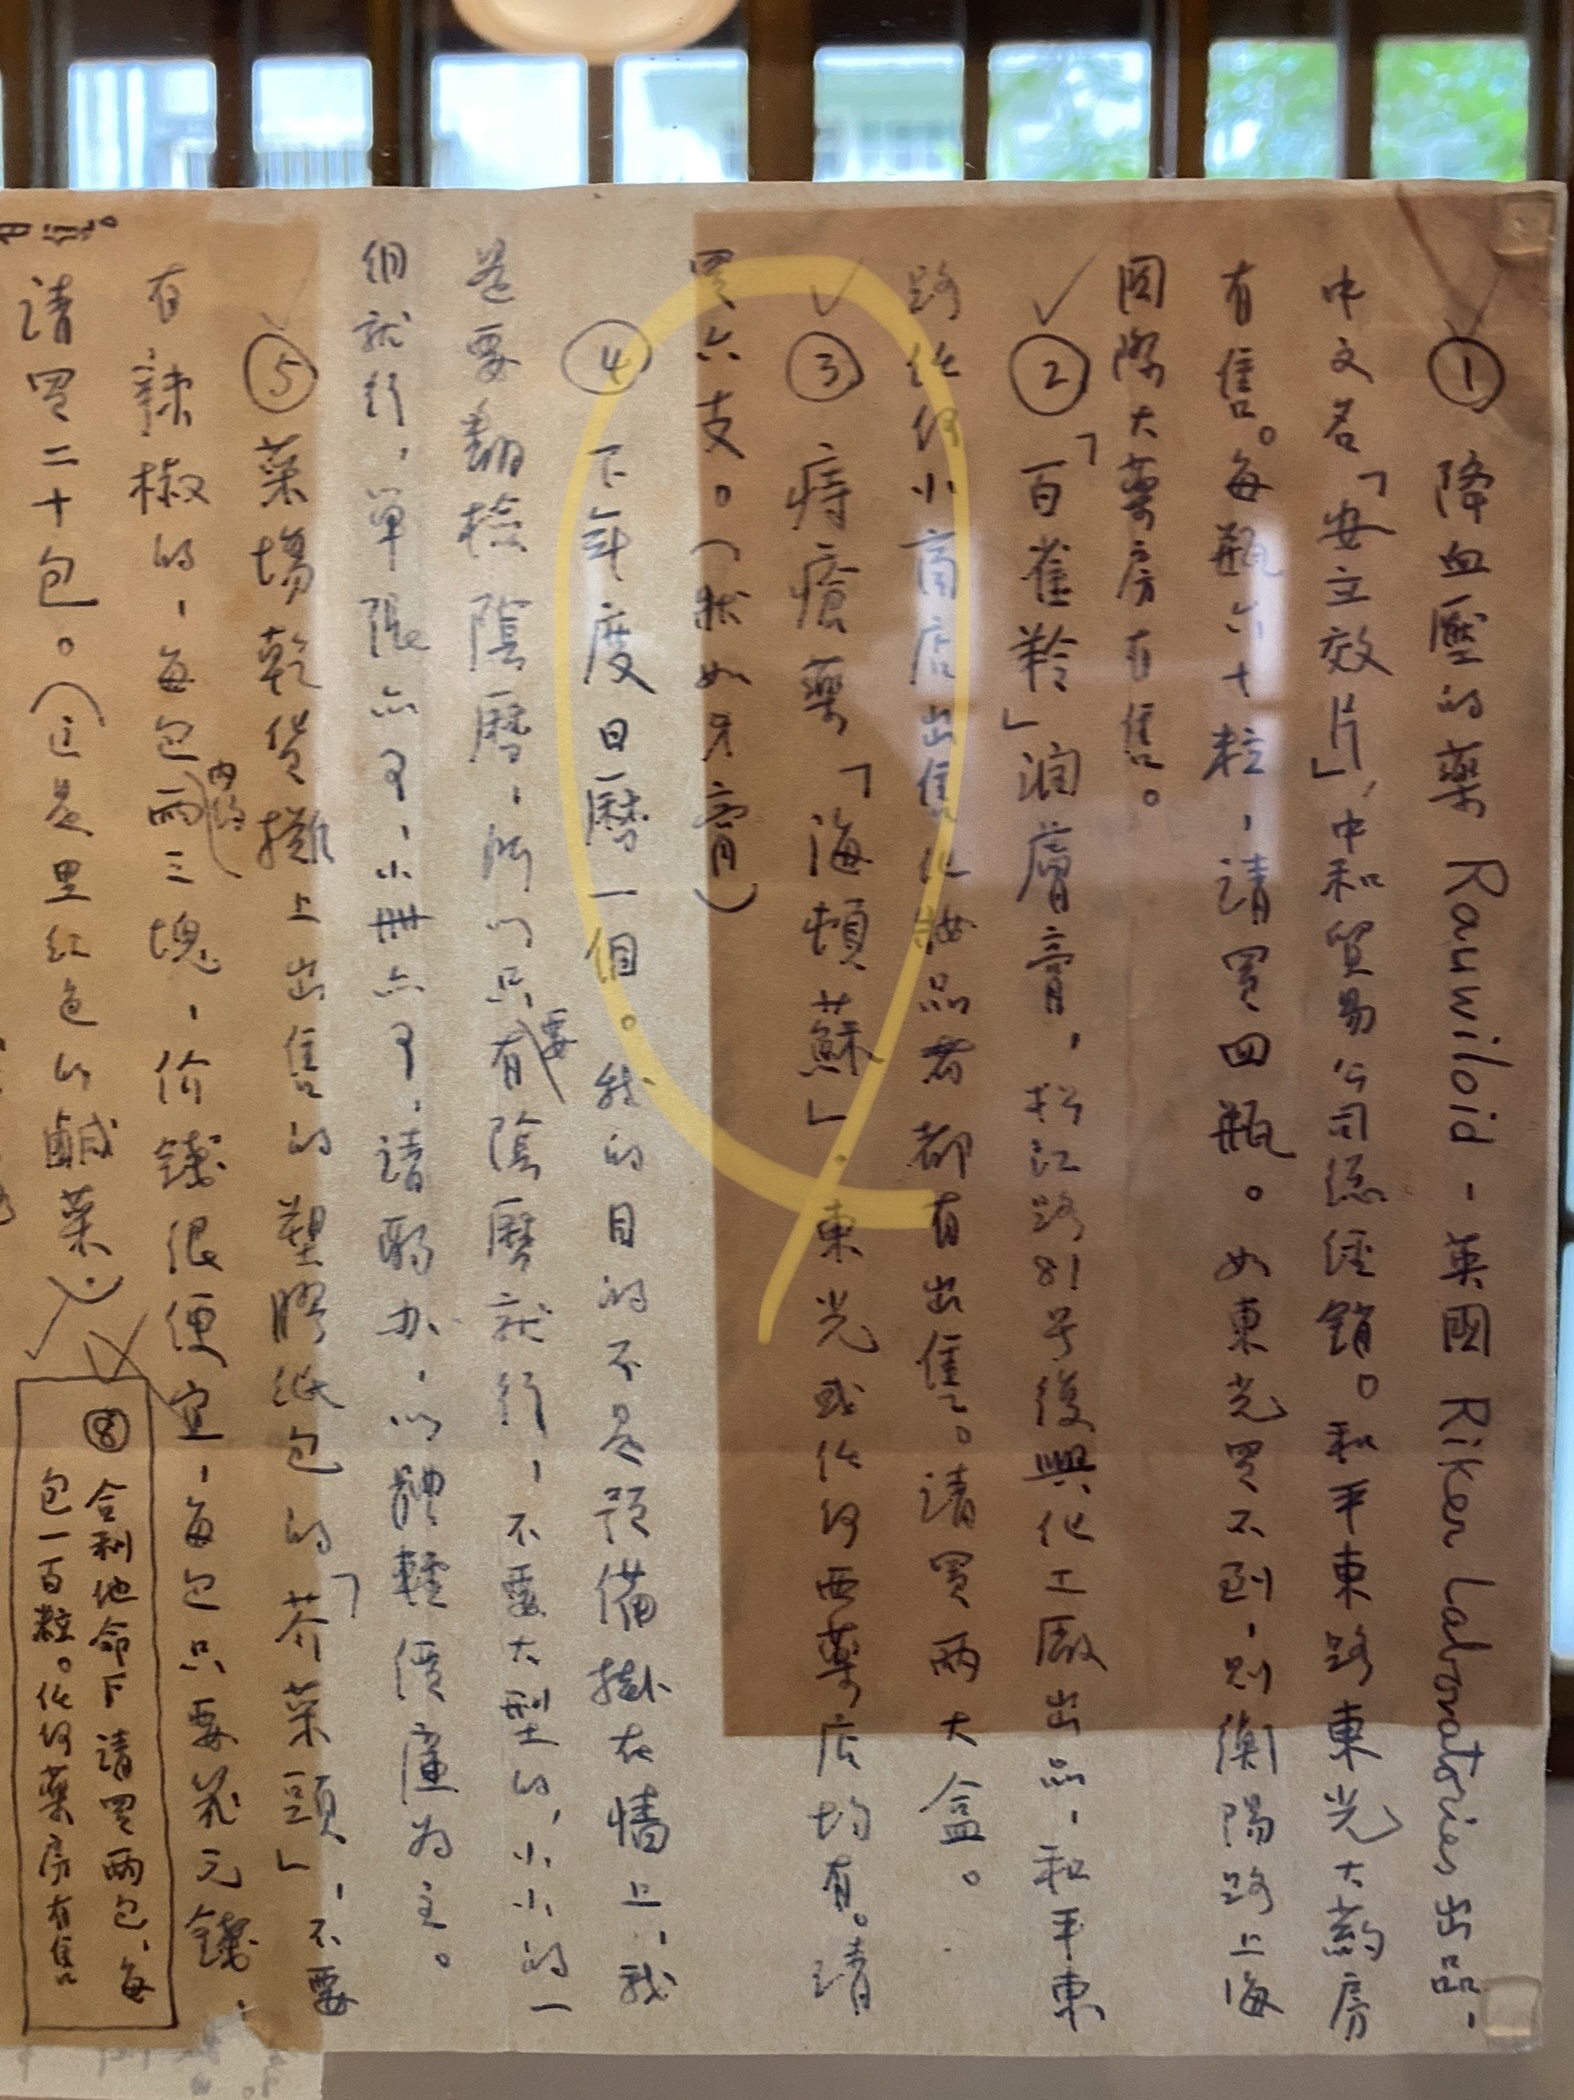 ①降血壓的藥 Rauwiloid - 英國 Riker Laboratories 出品，
中文名「安立效片」，中和貿易公司總經銷。和平東路東光大药房
有售。每瓶六十粒，請買四瓶。如東光買不到，則衡陽路上海
國際大藥房有售。
②「百雀羚」潤膚膏，松江路81号復興化工廠出品，和平東
路任何小商店出售化妝品者都有出售。請買兩大盒。
③痔瘡藥「海頓蘇」。東光或任何西藥店均有。請
買六支。（狀如牙膏）
④下年度日曆一個。我的目的不是預備掛在墻上，我
是要翻檢陰曆，所以只要有陰曆就行，不要大型的，小小的一
個就行，單張亦可，小冊亦可，請酌办，以體輕價廉为主。
⑤菜場乾貨攤上出售的塑膠紙包的「芥菜頭」，不要
有辣椒的，每包內約兩三塊，价錢很便宜，每包只要幾元錢，
請買二十包。（這是里紅色的鹹菜）
⑧合利他命下請買兩包，每
包一百粒。任何藥房有售